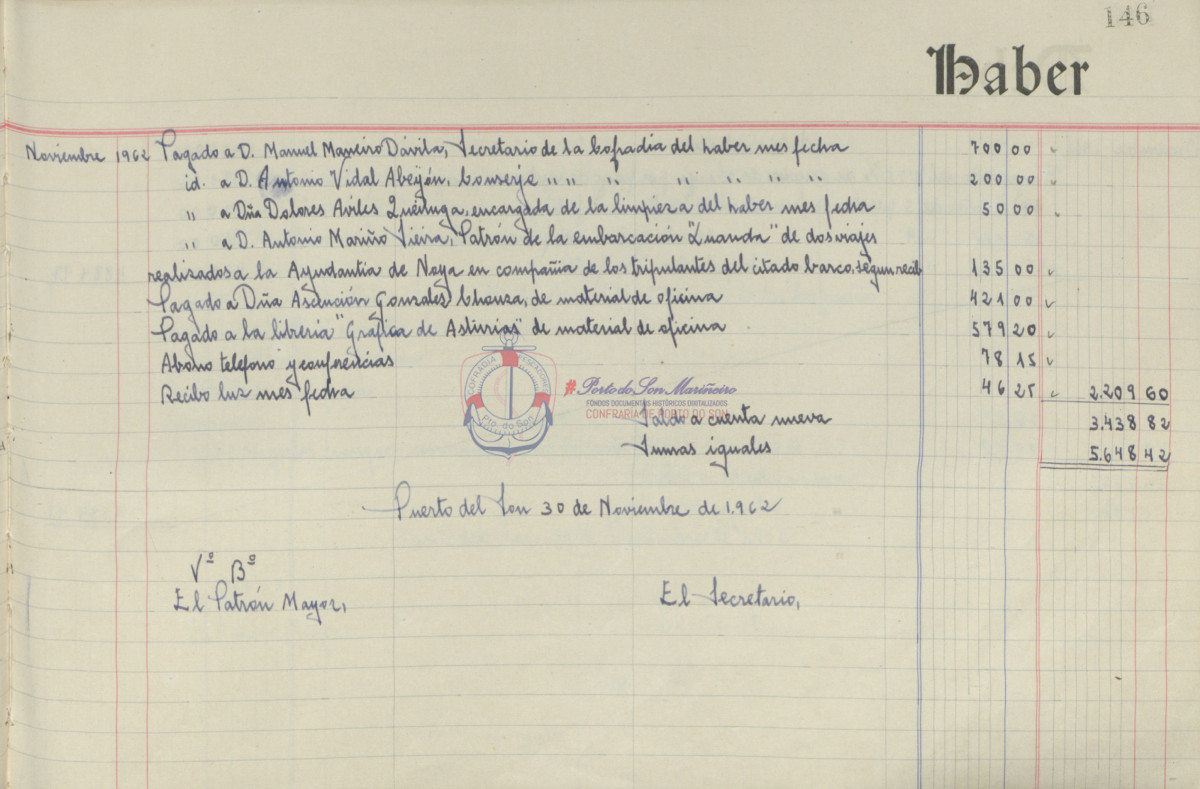 146
Haber
Noviembre 1962 Pagado a D. Manuel Maneiro Dávila, Secretario de la Cofradia del haber mes fecha 700 00
id. a D. Antonio Vidal Abeijón, Conserje " " " " " " " 200 00
" a Dña Dolores Aviles Queiruga, encargada de la limpieza del haber mes fecha 50 00
" a D. Antonio Mariño Vieira, Patrón de la embarcación "Luanda" de dos viajes
realizados a la Ayudantia de Noya en compañia de los tripulantes del citado barco, segun recib 135 00
Pagado a Dña Ascención Gonzales Chouza, de material de oficina 421 00
Pagado a la libreria "Gráfica de Asturias" de material de oficina 579 20
Abono telefono y conferencias 78 15
Recibo luz mes fecha 46 25 2.209 60
Saldo a cuenta nueva 3.438 82
Sumas iguales 5.648 42
COFRADIA PESCADORES
Pto. do Son
#Porto do Son Mariñeiro
FONDOS DOCUMENTAIS HISTÓRICOS DIXITALIZADOS
CONFRARIA DE PORTO DO SON
Puerto del Son 30 de Noviembre de 1.962
Vº Bº
El Patrón Mayor, El Secretario,